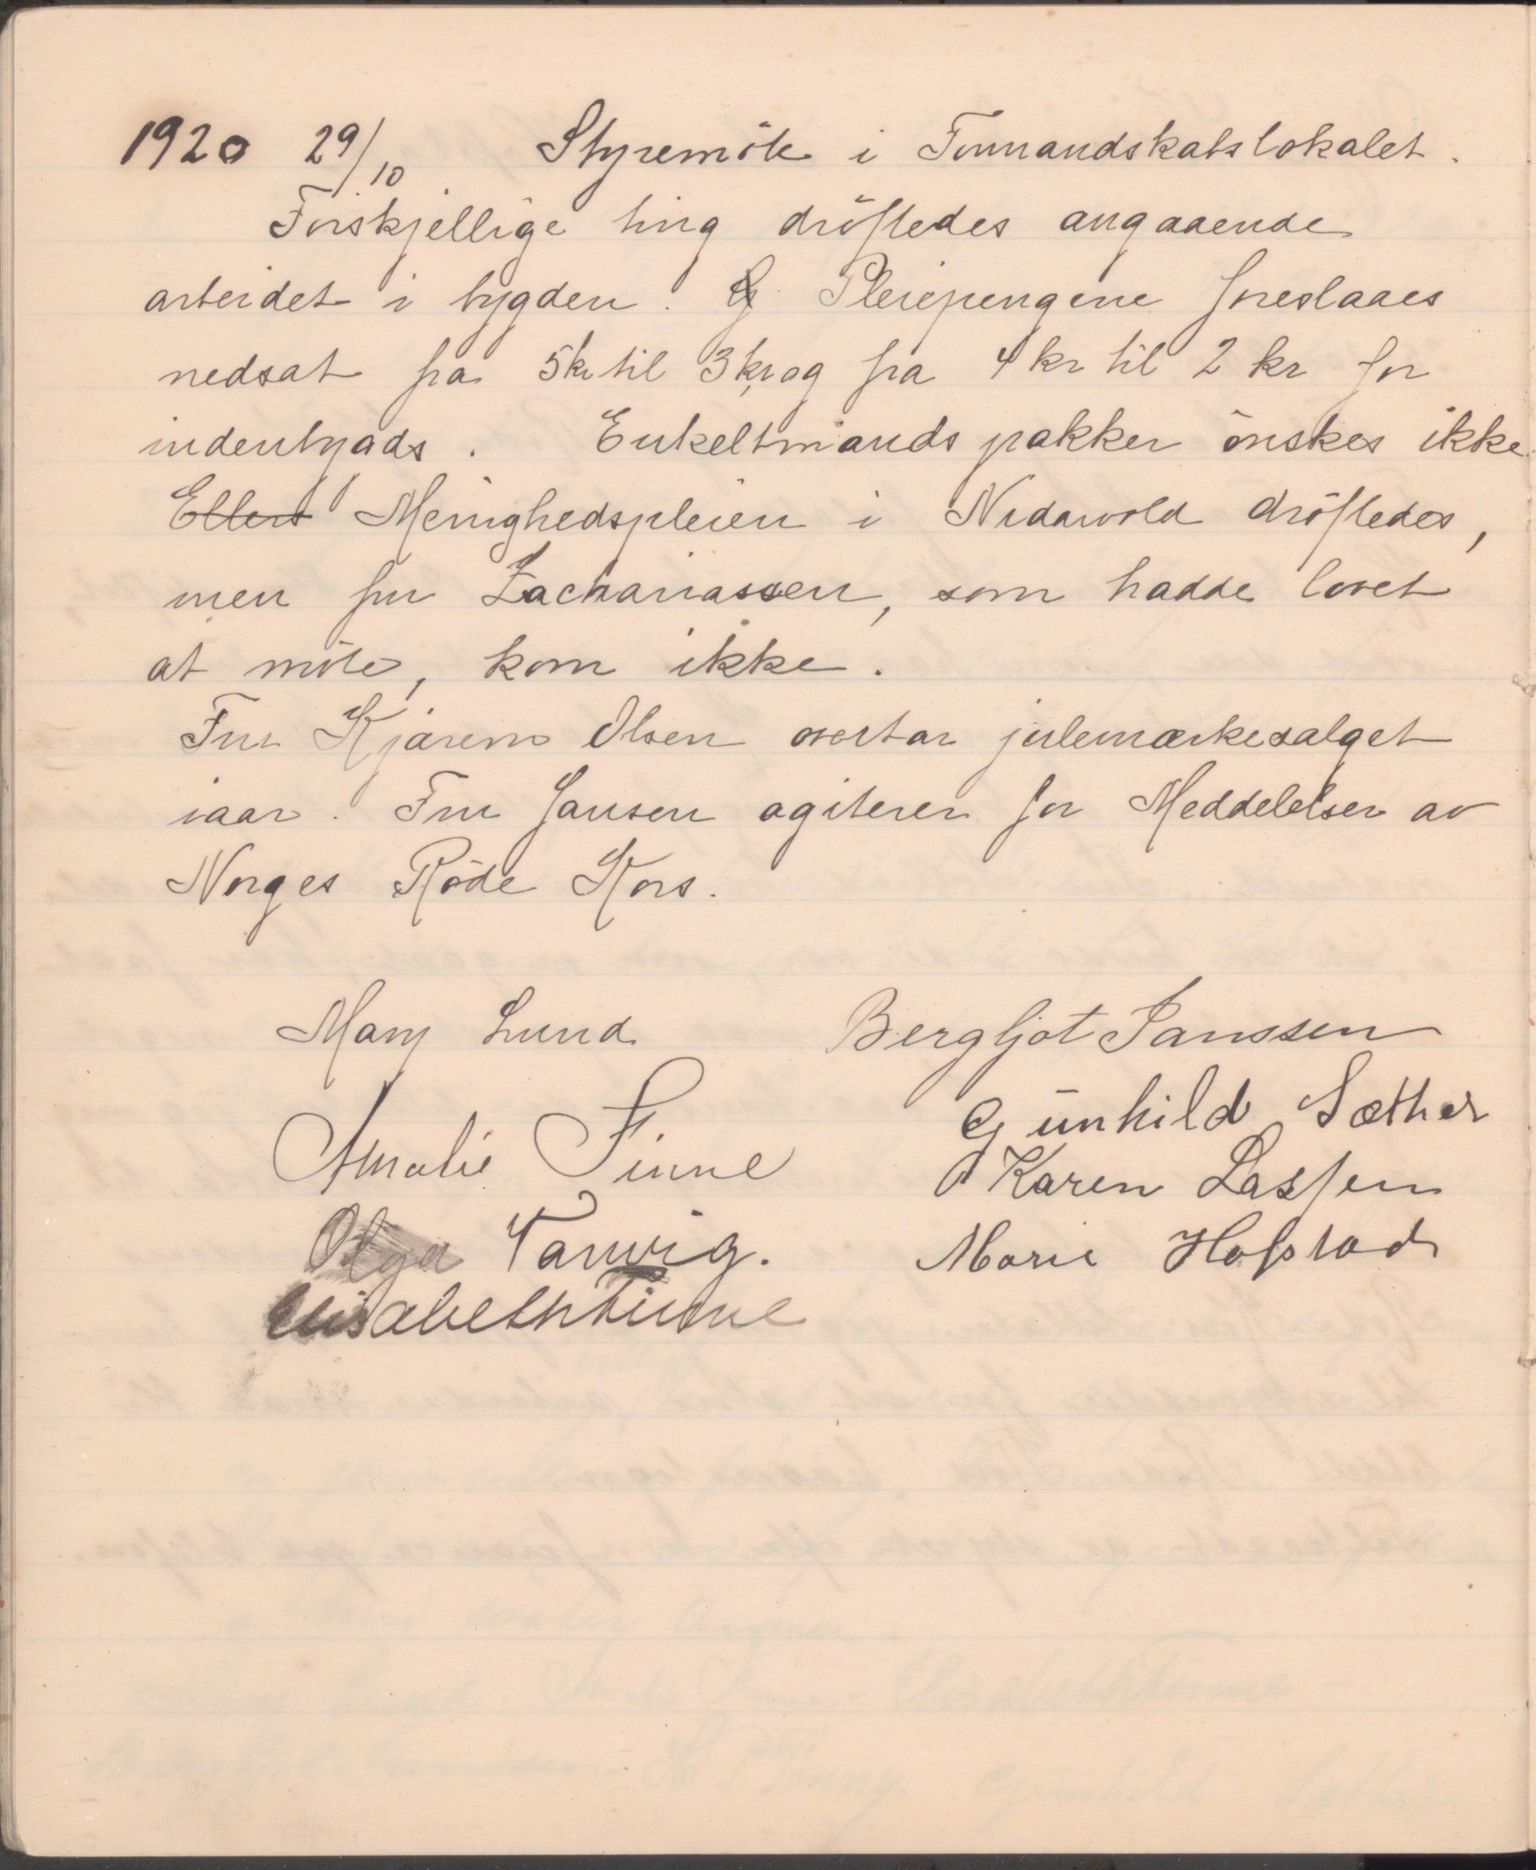 1920 29/10 Styremöte i Formandskabslokalet.
Forskjellige ting dröftedes angaaende
arbeidet i bygden. Pleiepengene foreslaaes
nedsat fra 5 kr til 3 kr og fra 4 kr til 2 kr for
indenbygds. Enkeltmands pakker önskes ikke.
Ellers Menighedspleien i Nidarvold dröftedes,
men fru Zachariassen, som hadde lovet
at möte, kom ikke.
Fru Kjærem Olsen overtar julemærkesalget
iaar. Fru Jansen agiterer for Meddelelser av
Norges Röde Kors.
Mary Lund Bergljot Janssen
Amalie Finne Gunhild Sæther
Karen Lassen
Olga Tanvig. Marie Hofstad
Elisabeth Finne